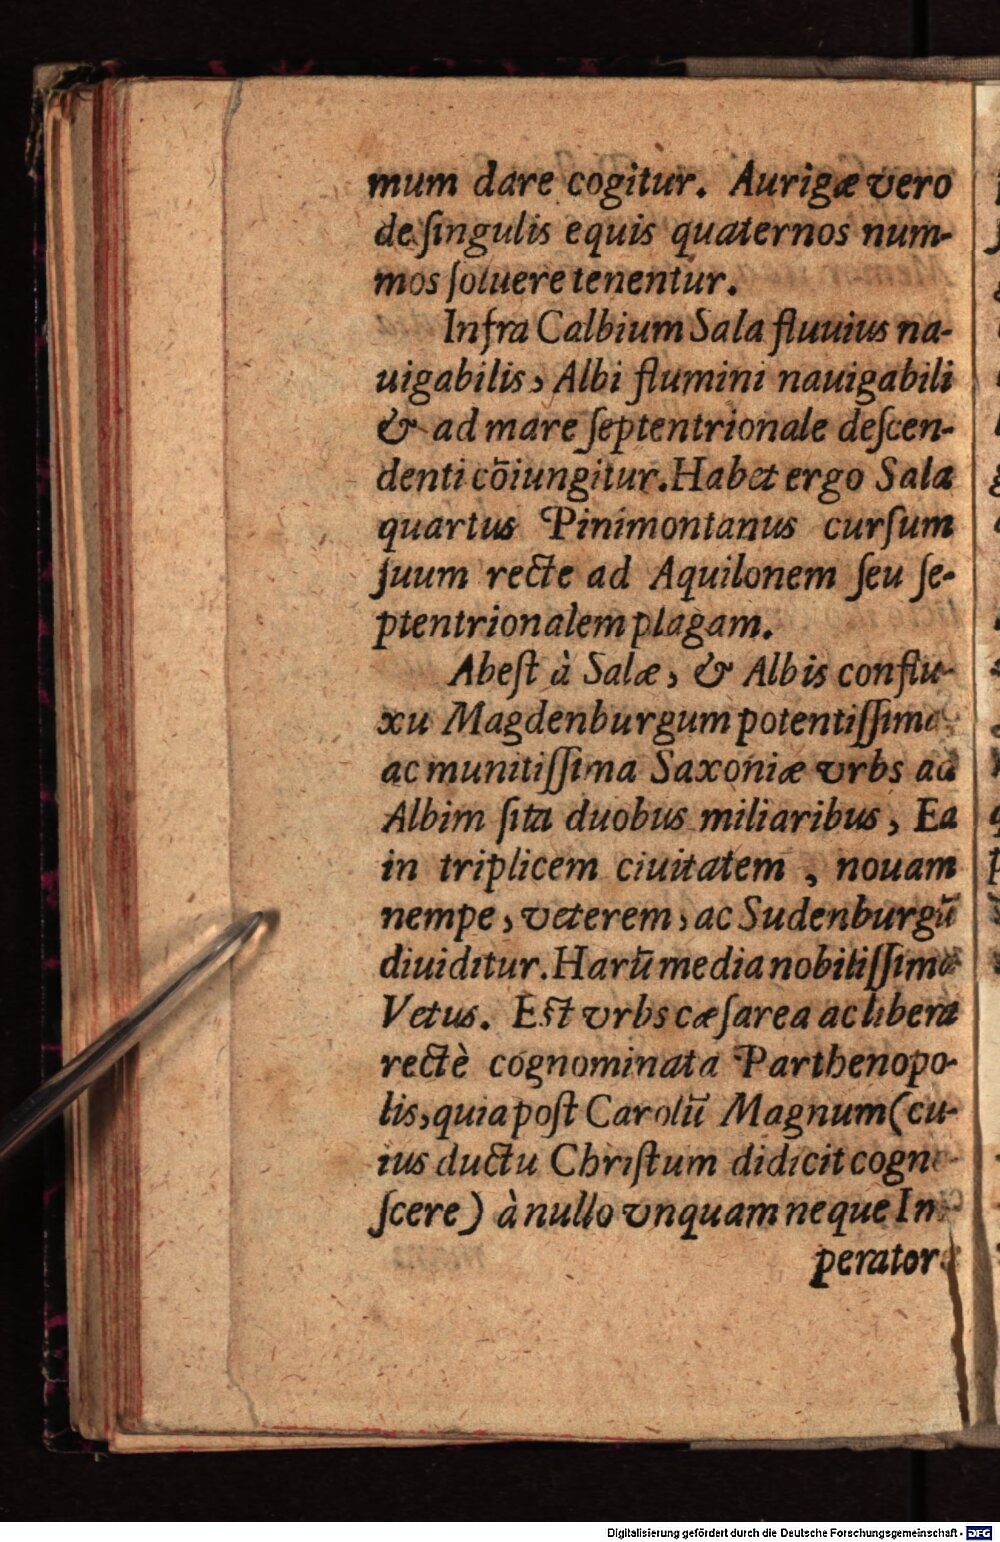 mum dare cogitur. Aurigæ vero
de ſingulis equis quaternos num-
mos ſoluere tenentur.
Infra Calbium Sala fluuius na-
uigabilis, Albi flumini nauigabili
& ad mare ſeptentrionale deſcen-
denti cōiungitur. Habet ergo Sala
quartus Pinimontanus curſum
ſuum recte ad Aquilonem ſeu ſe-
ptentrionalem plagam.
Abeſt à Salæ, & Albis conflu-
xu Magdenburgum potentiſſima
ac munitiſſima Saxoniæ vrbs ad
Albim ſita duobus miliaribus, Ea
in triplicem ciuitatem, nouam
nempe, veterem, ac Sudenburgū
diuiditur. Harū media nobiliſſima
Vetus. Eſt vrbs cæſarea ac libera
rectè cognominata Parthenopo-
lis, quia poſt Carolū Magnum (cu-
ius ductu Chriſtum didicit cogno-
ſcere) à nullo vnquam neque Im-
perator
Digitalisierung gefördert durch die Deutsche Forschungsgemeinschaft - DFG